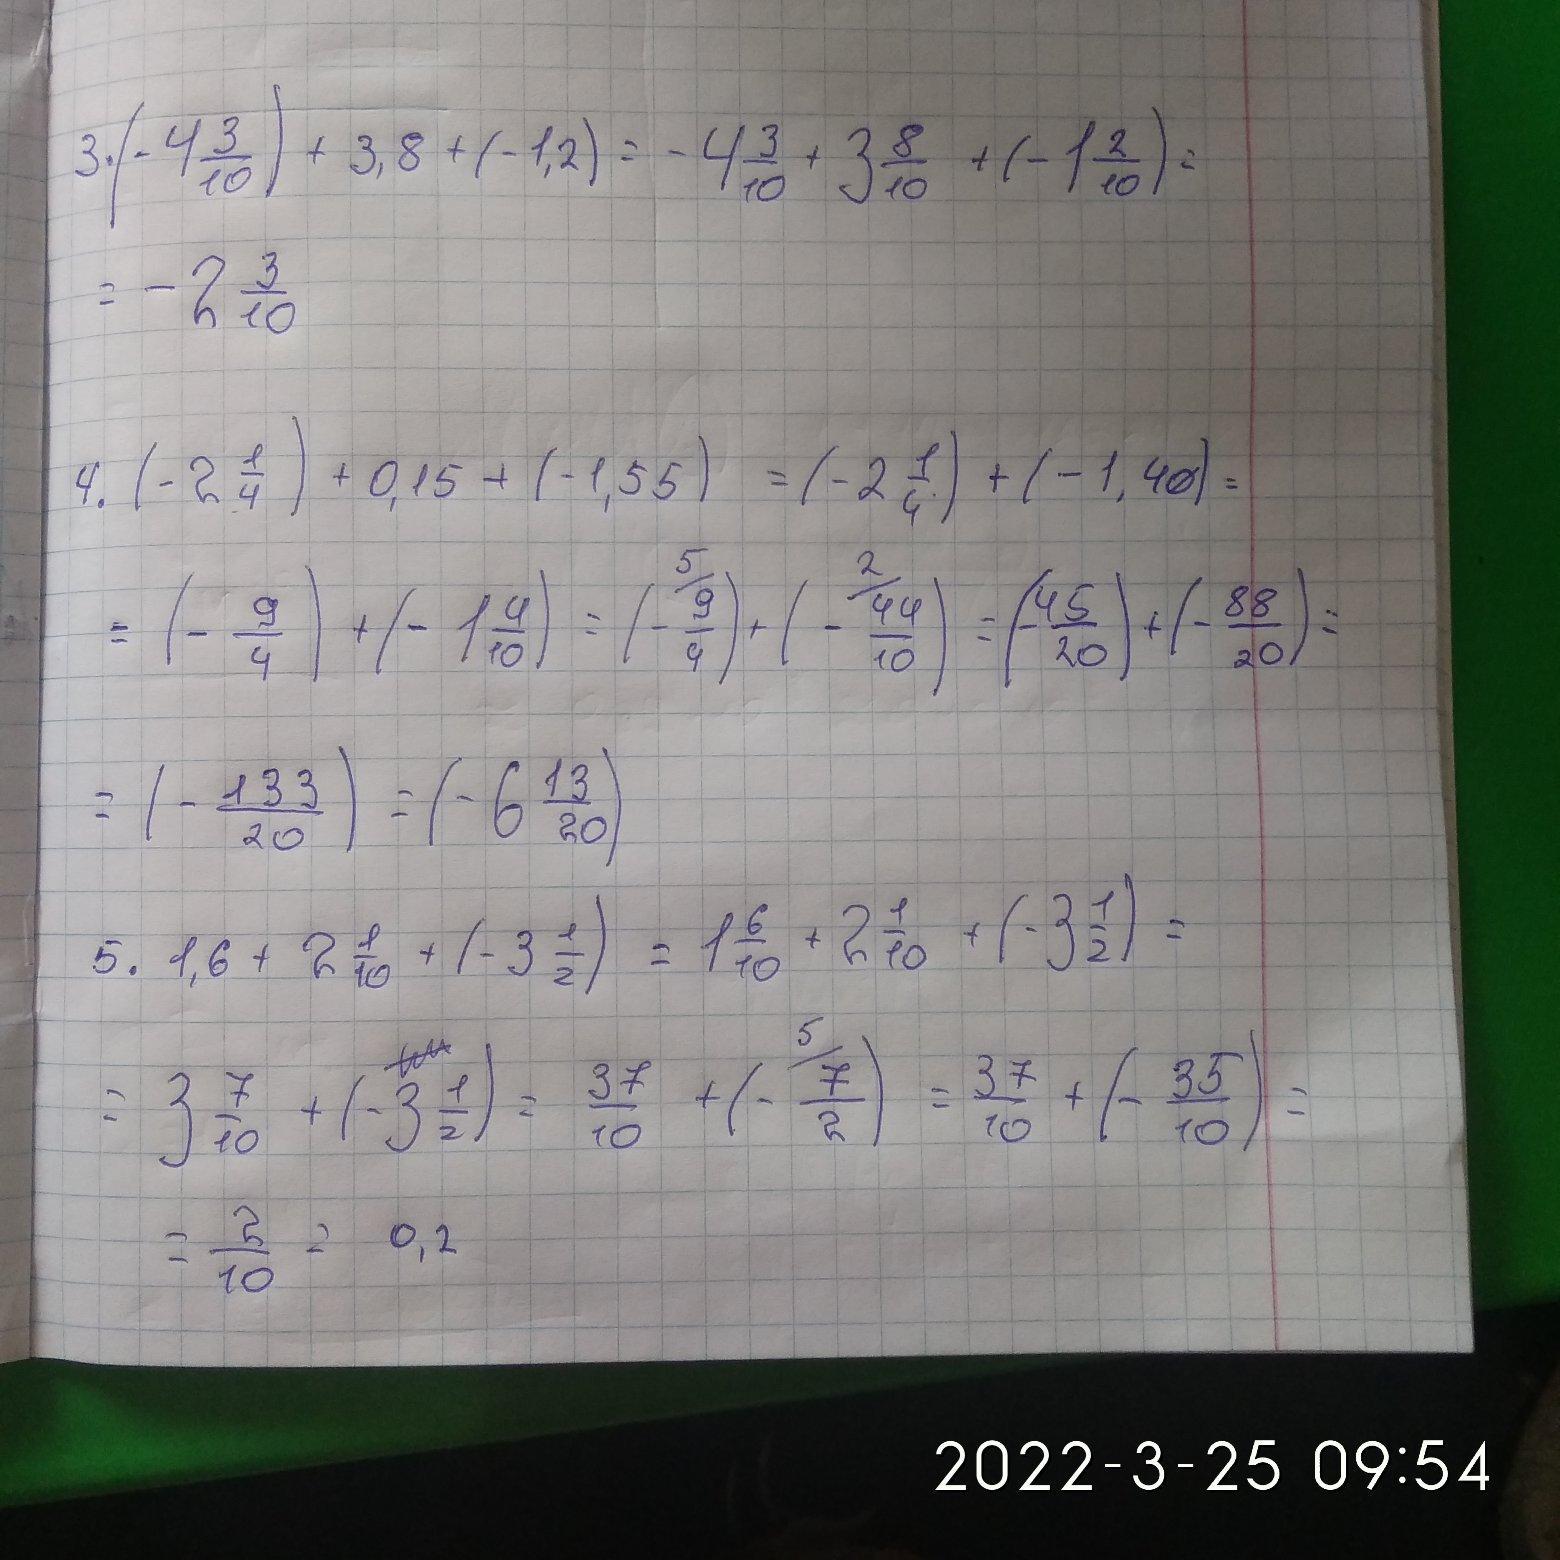 3. (-4 3/10) + 3,8 + (-1,2) = -4 3/10 + 3 8/10 + (-1 2/10) =
= -2 3/10
4. (-2 1/4) + 0,15 + (-1,55) = (-2 1/4) + (-1,40) =
= (- 9/4) + (- 1 4/10) = (- 9/4) 5/ + (- 44/10) 2/ = (- 45/20) + (- 88/20) =
= (- 133/20) = (-6 13/20)
5. 1,6 + 2 1/10 + (-3 1/2) = 1 6/10 + 2 1/10 + (-3 1/2) =
= 3 7/10 + (-3 1/2) = 37/10 + (- 7/2) 5/ = 37/10 + (- 35/10) =
= 2/10 = 0,2
2022-3-25 09:54